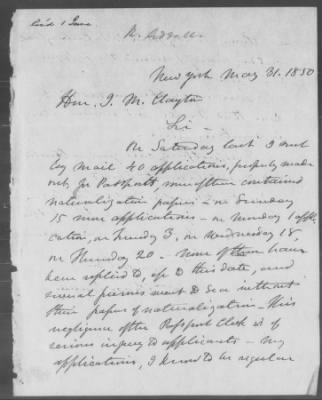 Rec'd 1 June
New York May 31. 1850
Hon. J. M. Clayton
Sir -
On Saturday last I sent
by mail 40 applications, properly made
out, for Passports, nineteen contained
naturalization papers - on Sunday
15 more applications - on Monday 1 appli
cation, on Tuesday 3, on Wednesday 18,
on Thursday 20 - None of them have
been replied to, up to this date, and
several persons went to sea without
their papers of naturalization - This
negligence of the Passport Clerk is of
serious injury to applicants - my
applications, I know to be regular